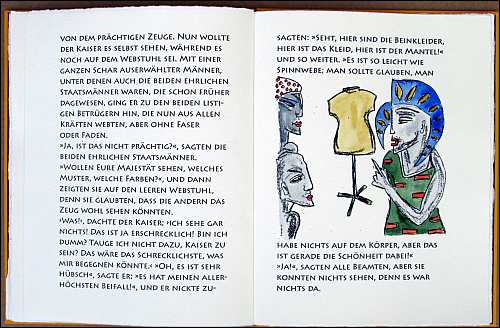 VON DEM PRÄCHTIGEN ZEUGE. NUN WOLLTE
DER KAISER ES SELBST SEHEN, WÄHREND ES
NOCH AUF DEM WEBSTUHL SEI. MIT EINER
GANZEN SCHAR AUSERWÄHLTER MÄNNER,
UNTER DENEN AUCH DIE BEIDEN EHRLICHEN
STAATSMÄNNER WAREN, DIE SCHON FRÜHER
DAGEWESEN, GING ER ZU DEN BEIDEN LISTI-
GEN BETRÜGERN HIN, DIE NUN AUS ALLEN
KRÄFTEN WEBTEN, ABER OHNE FASER
ODER FADEN.
»JA, IST DAS NICHT PRÄCHTIG?«, SAGTEN DIE
BEIDEN EHRLICHEN STAATSMÄNNER.
»WOLLEN EURE MAJESTÄT SEHEN, WELCHES
MUSTER, WELCHE FARBEN?«, UND DANN
ZEIGTEN SIE AUF DEN LEEREN WEBSTUHL,
DENN SIE GLAUBTEN, DASS DIE ANDERN DAS
ZEUG WOHL SEHEN KÖNNTEN.
›WAS!‹, DACHTE DER KAISER; ›ICH SEHE GAR
NICHTS! DAS IST JA ERSCHRECKLICH! BIN ICH
DUMM? TAUGE ICH NICHT DAZU, KAISER ZU
SEIN? DAS WÄRE DAS SCHRECKLICHSTE, WAS
MIR BEGEGNEN KÖNNTE.‹ »OH, ES IST SEHR
HÜBSCH«, SAGTE ER; »ES HAT MEINEN ALLER-
HÖCHSTEN BEIFALL!«, UND ER NICKTE ZU-
SAGTEN: »SEHT, HIER SIND DIE BEINKLEIDER,
HIER IST DAS KLEID, HIER IST DER MANTEL!«
UND SO WEITER. »ES IST SO LEICHT WIE
SPINNWEBE; MAN SOLLTE GLAUBEN, MAN
HABE NICHTS AUF DEM KÖRPER, ABER DAS
IST GERADE DIE SCHÖNHEIT DABEI!«
»JA!«, SAGTEN ALLE BEAMTEN, ABER SIE
KONNTEN NICHTS SEHEN, DENN ES WAR
NICHTS DA.